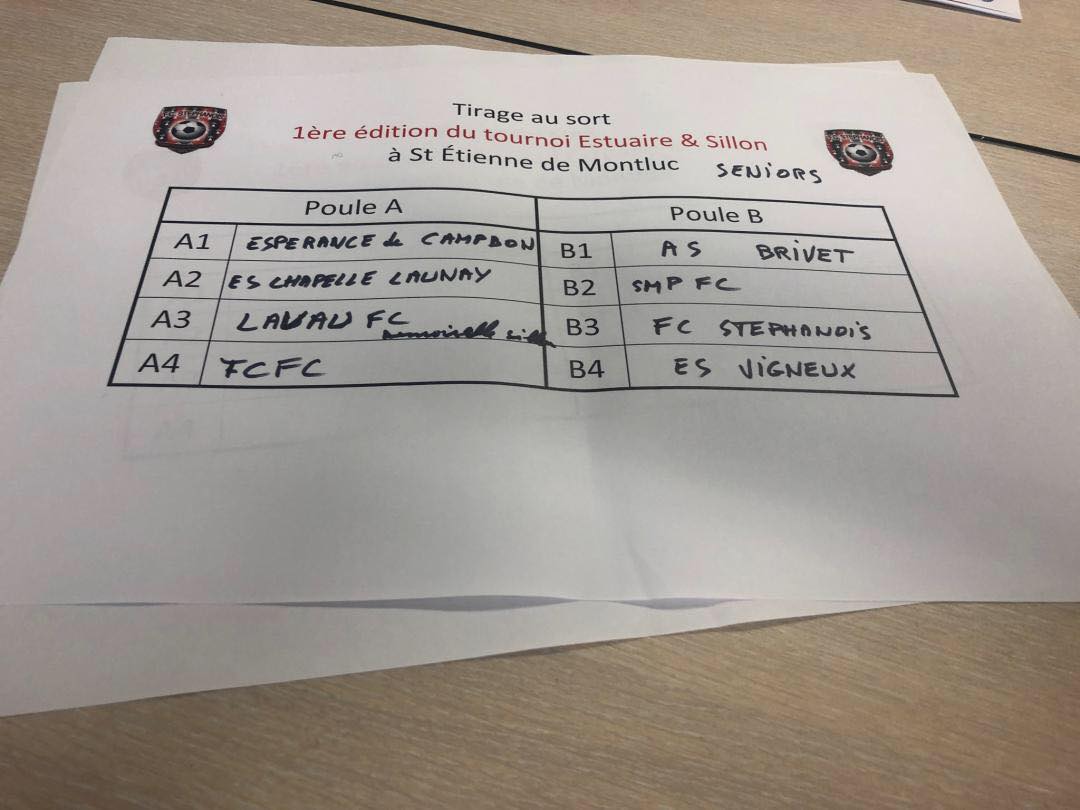 Tirage au sort
1ère édition du tournoi Estuaire & Sillon
à St Étienne de Montluc SENiORS
Poule A Poule B
A1 ESPERANCE de CAMPBON B1 AS BRIVET
A2 ES CHAPELLE LAUNAY B2 SMP FC
A3 LAVAU FC B3 FC STEPHANOiS
A4 TCFC B4 ES ViGNEUX